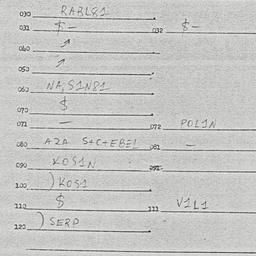 030 RARL81
031 $ - 032 $ -
040
050
060 NA, S1N81
070 $
071 - 072 POL1N
080 A2A S+C+EBEL 081 -
090 KOS1N 091
100 ) KOS1
110 $ 111 V1L1
120 ) SERP